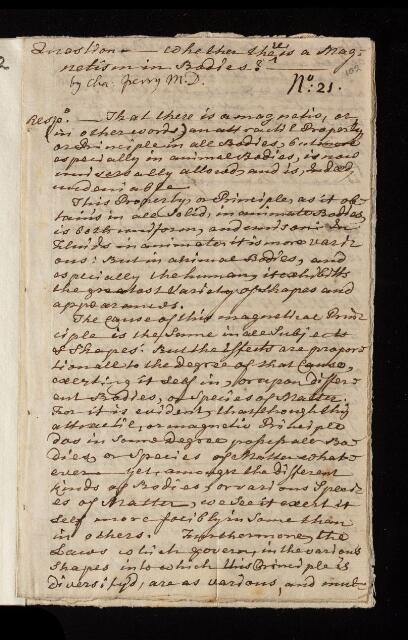 Question — whether there is a Mag-
netism in Bodies?
by Cha: Perry M.D.
No: 21.
102
2
Resp.o — That there is a magnetic, or,
(in other words) an attractil Property,
or Principle in all Bodies, but more
especially in animal Bodies, is now
universally allowed, and is, indeed
undeniable.
This Property, or Principle, as it ob-
tains in all solid, inanimate Bodies,
is both uniform, and unison: In
Fluids inanimate it is more vari-
ous: But in animal Bodies, and
especially the human, it exhibits
the greatest Variety of shapes and
appearances.
The Cause of this magnetical Prin-
ciple is the Same in all Subjects
& Shapes: But the Effects are propor-
tional to the degree of that Cause,
exerting it self in, or upon differ-
ent Bodies, or Species of Matter.
For it is evident, that though this
attractil, or magnetic Principle
das in Some degree possess all Bo-
dies, or Species of Matter what-
ever — yet, amongst the different
kinds of Bodies, or various Speci-
es of Matter, we See it exert it
self more forcibly in Some than
in others. Furthermore, the
Laws which govern, in the various
shapes into which this Principle is
diversify'd, are as various, and mul-